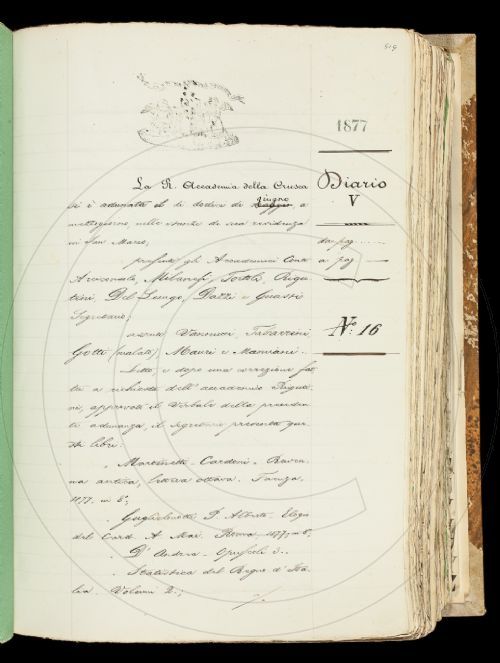 1877
Diario
V
da pag.
a pag.
N.º 16
La R. Accademia della Crusca
si è adunata il dì dodici di giugno a
mezzogiorno, nelle stanze di sua residenza
in San Marco,
presenti gli Accademici Conti
Arciconsolo, Milanesi, Tortoli, Rigu-
tini, Del Lungo, Dazzi e Guasti
Segretario;
assenti Vannucci, Tabarrini,
Gotti (malato), Mauri e Mamiani.
Letto, e dopo una correzione fat-
ta a richiesta dell'accademico Riguti-
ni, approvato il Verbale della preceden-
te adunanza, il Segretario presenta que-
sti libri:
Martinetti-Cardoni. Raven-
na antica, lettera ottava. Faenza,
1877, in 8°;
Guglielmotti P. Alberto. Elogio
del Card. A. Mai. Roma, 1877, in 8°;
D'Andrea. Opuscoli 3.
Statistica del Regno d'Ita-
lia. Volumi 2.;